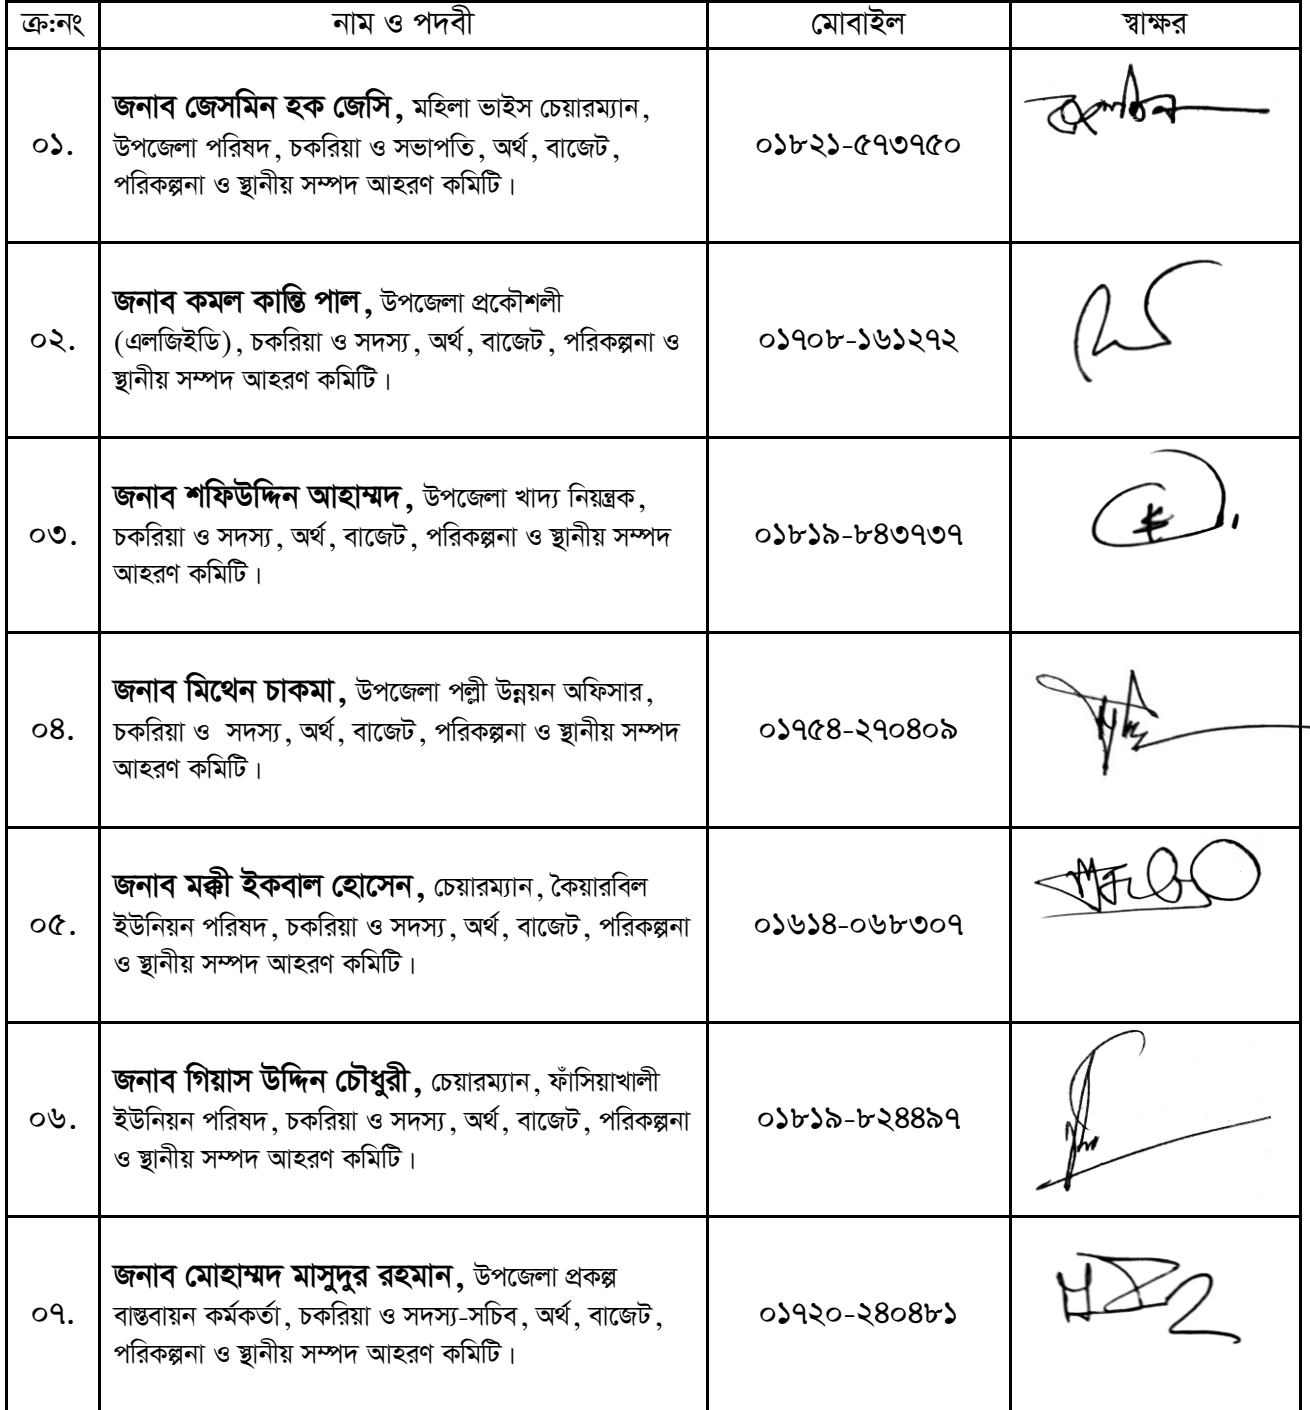 ক্র:নং নাম ও পদবী মোবাইল স্বাক্ষর
০১.
জনাব জেসমিন হক জেসি, মহিলা ভাইস চেয়ারম্যান,
উপজেলা পরিষদ, চকরিয়া ও সভাপতি, অর্থ, বাজেট,
পরিকল্পনা ও স্থানীয় সম্পদ আহরণ কমিটি।
০১৮২১-৫৭৩৭৫০
০২.
জনাব কমল কান্তি পাল, উপজেলা প্রকৌশলী
(এলজিইডি), চকরিয়া ও সদস্য, অর্থ, বাজেট, পরিকল্পনা ও
স্থানীয় সম্পদ আহরণ কমিটি।
০১৭০৮-১৬১২৭২
০৩.
জনাব শফিউদ্দিন আহাম্মদ, উপজেলা খাদ্য নিয়ন্ত্রক,
চকরিয়া ও সদস্য, অর্থ, বাজেট, পরিকল্পনা ও স্থানীয় সম্পদ
আহরণ কমিটি।
০১৮১৯-৮৪৩৭৩৭
০৪.
জনাব মিথেন চাকমা, উপজেলা পল্লী উন্নয়ন অফিসার,
চকরিয়া ও সদস্য, অর্থ, বাজেট, পরিকল্পনা ও স্থানীয় সম্পদ
আহরণ কমিটি।
০১৭৫৪-২৭০৪০৯
০৫.
জনাব মক্কী ইকবাল হোসেন, চেয়ারম্যান, কৈয়ারবিল
ইউনিয়ন পরিষদ, চকরিয়া ও সদস্য, অর্থ, বাজেট, পরিকল্পনা
ও স্থানীয় সম্পদ আহরণ কমিটি।
০১৬১৪-০৬৮৩০৭
০৬.
জনাব গিয়াস উদ্দিন চৌধুরী, চেয়ারম্যান, ফাঁসিয়াখালী
ইউনিয়ন পরিষদ, চকরিয়া ও সদস্য, অর্থ, বাজেট, পরিকল্পনা
ও স্থানীয় সম্পদ আহরণ কমিটি।
০১৮১৯-৮২৪৪৯৭
০৭.
জনাব মোহাম্মদ মাসুদুর রহমান, উপজেলা প্রকল্প
বাস্তবায়ন কর্মকর্তা, চকরিয়া ও সদস্য-সচিব, অর্থ, বাজেট,
পরিকল্পনা ও স্থানীয় সম্পদ আহরণ কমিটি।
০১৭২০-২৪০৪৮১